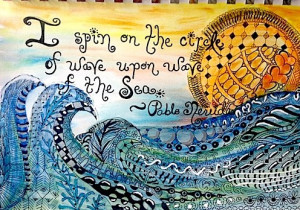 I spin on the circle
of wave upon wave
of the Sea
~ Pablo Neruda